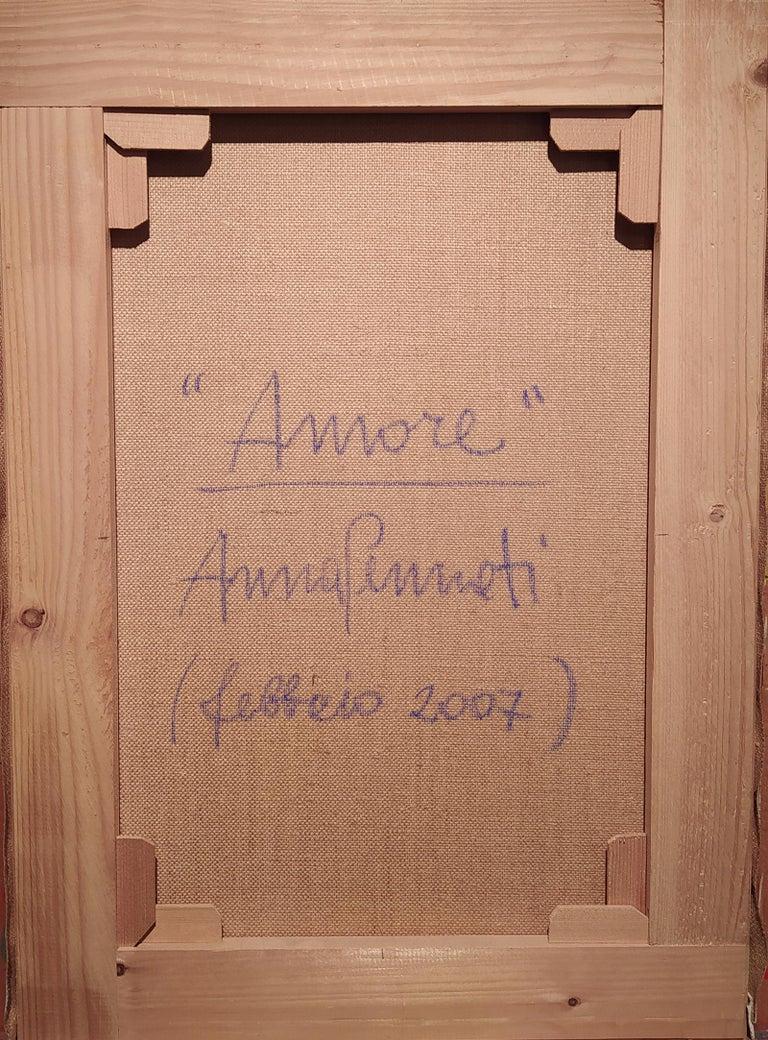 "Amore"
Anna Pennati
(febbraio 2007)